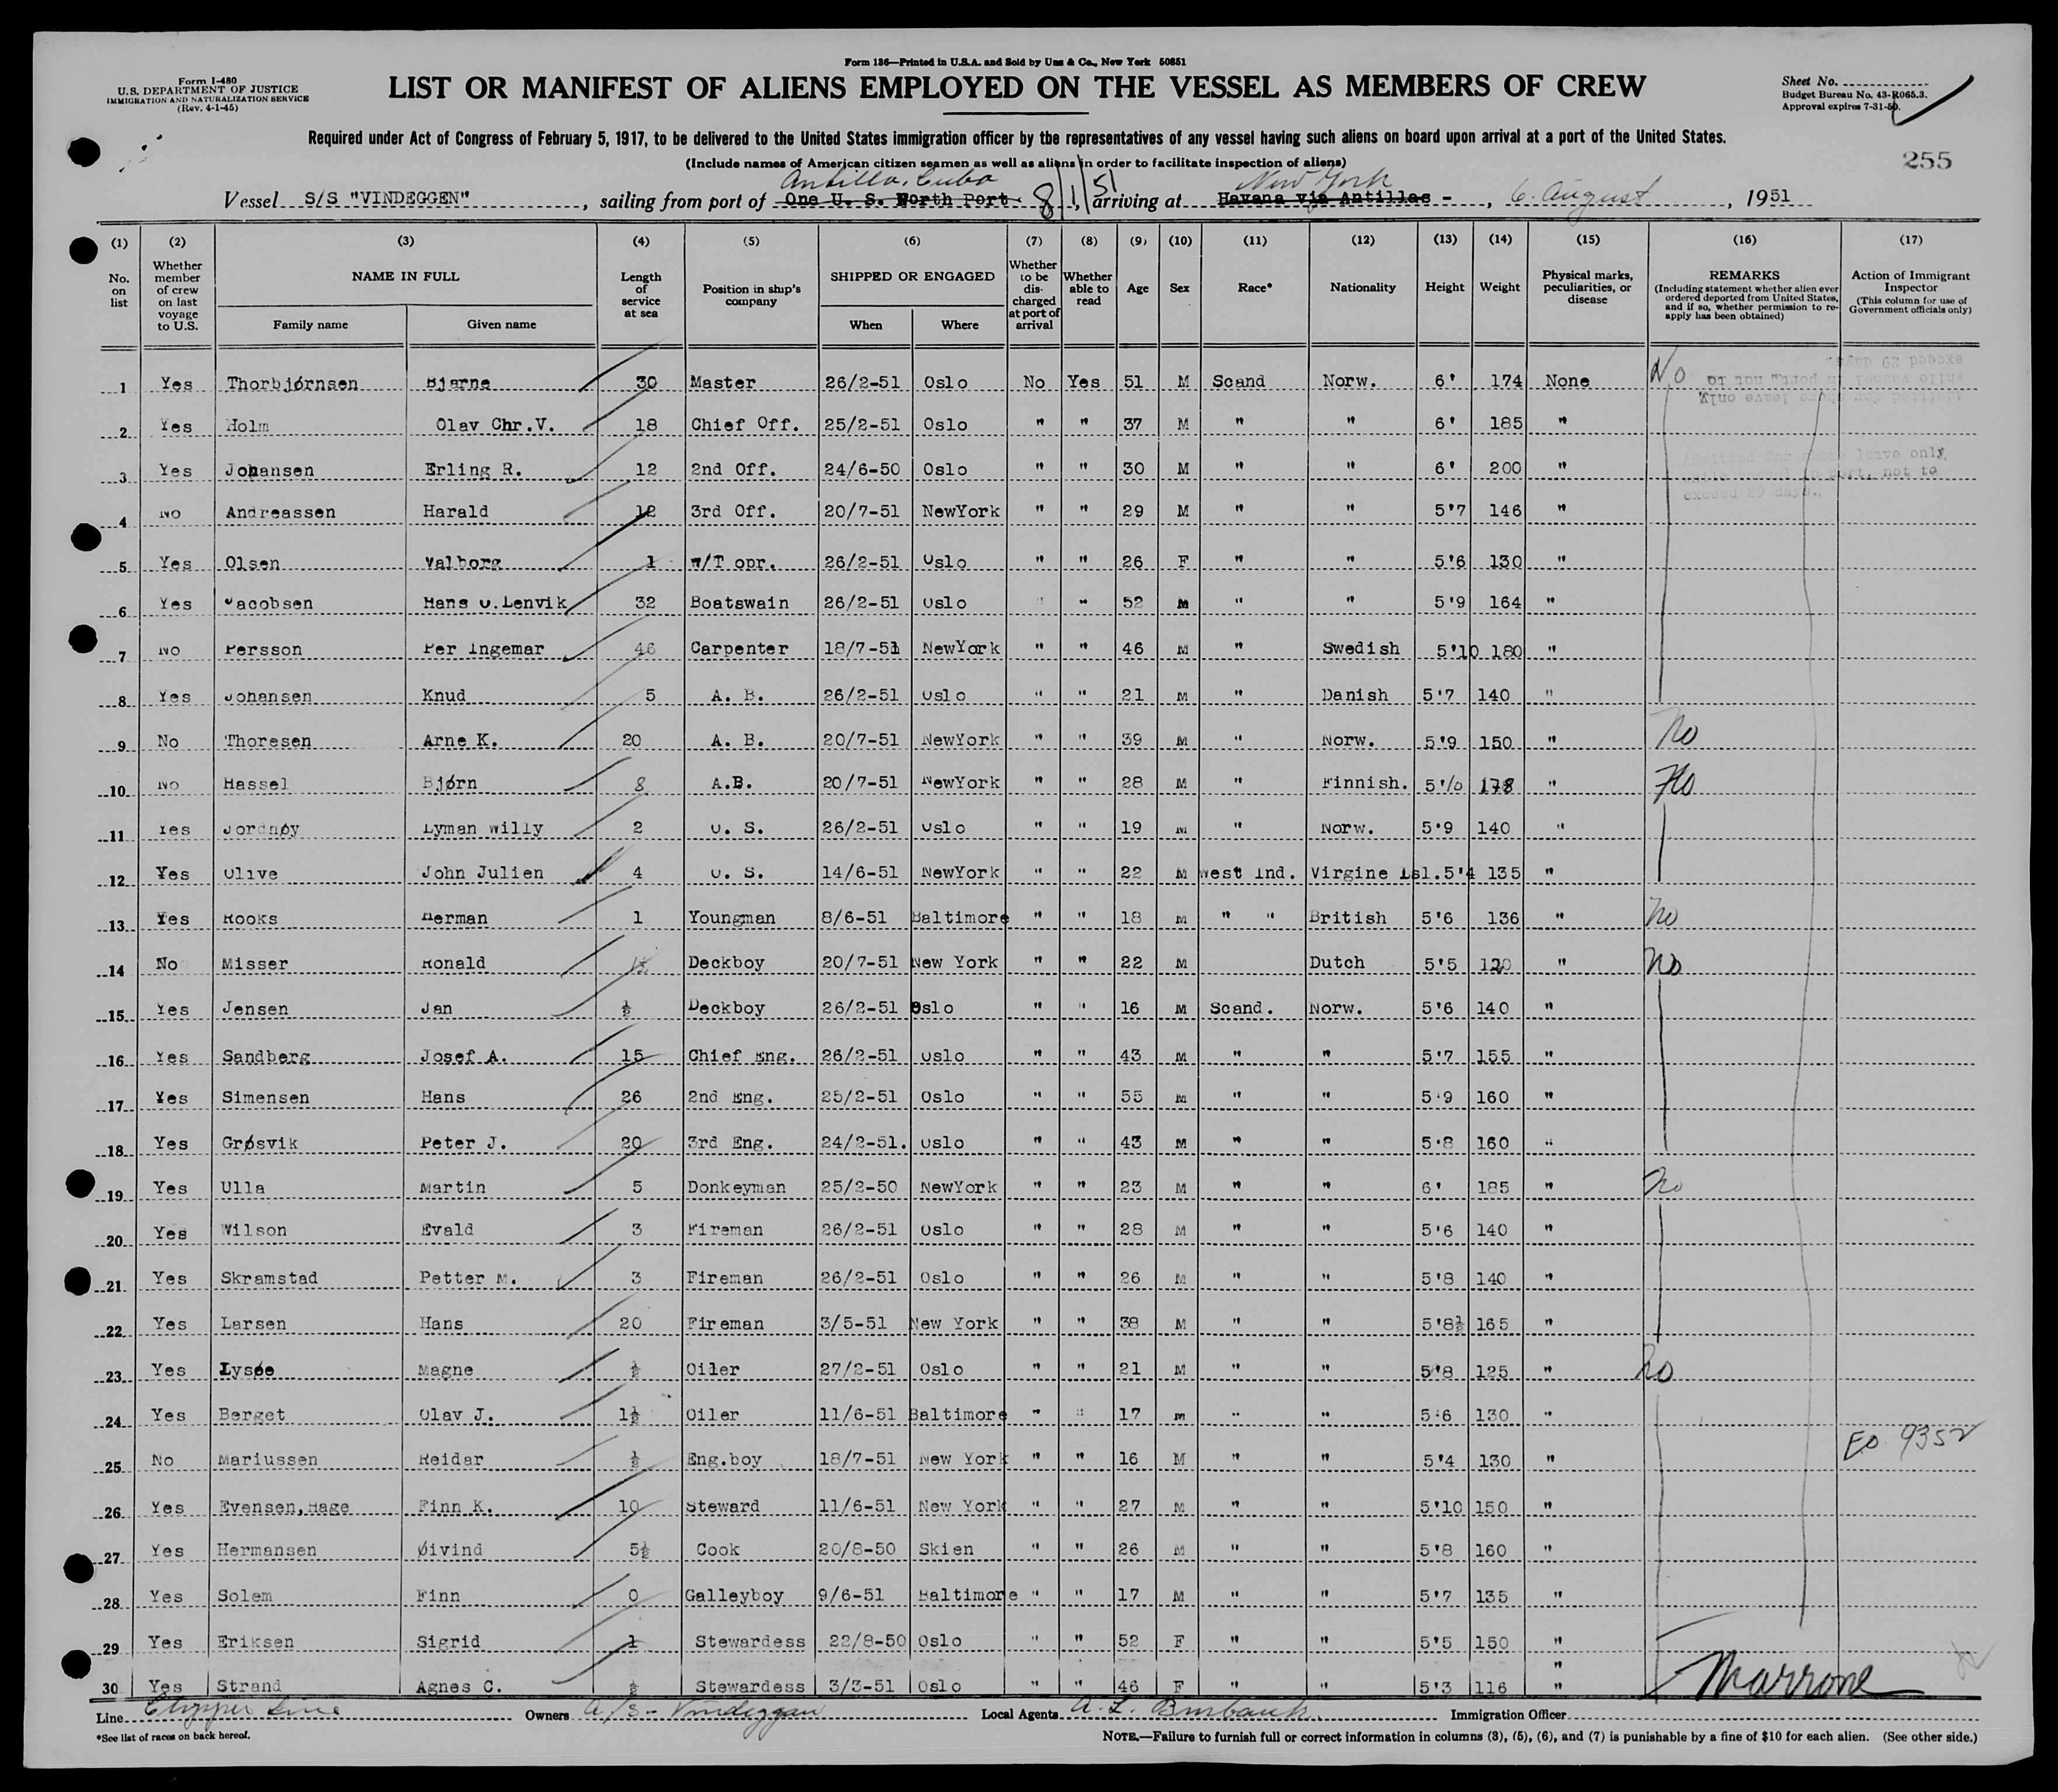 Form 136—Printed in U.S.A. and Sold by Unz & Co., New York 50851
Form I-480
U.S. DEPARTMENT OF JUSTICE
IMMIGRATION AND NATURALIZATION SERVICE
(Rev. 4-1-45)
LIST OR MANIFEST OF ALIENS EMPLOYED ON THE VESSEL AS MEMBERS OF CREW
Sheet No.
Budget Bureau No. 43-R065.3.
Approval expires 7-31-50.
Required under Act of Congress of February 5, 1917, to be delivered to the United States immigration officer by the representatives of any vessel having such aliens on board upon arrival at a port of the United States.
(Include names of American citizen seamen as well as aliens in order to facilitate inspection of aliens)
255
Antilla, Cuba 8/1/51 New York
Vessel S/S "VINDEGGEN", sailing from port of One U. S. North Port, arriving at Havana via Antillas -, 6. August, 1951
(1) (2) (3) (4) (5) (6) (7) (8) (9) (10) (11) (12) (13) (14) (15) (16) (17)
No. on list
Whether member of crew on last voyage to U.S.
NAME IN FULL
Family name Given name
Length of service at sea
Position in ship's company
SHIPPED OR ENGAGED
When Where
Whether to be discharged at port of arrival
Whether able to read
Age
Sex
Race*
Nationality
Height
Weight
Physical marks, peculiarities, or disease
REMARKS
(Including statement whether alien ever ordered deported from United States, and if so, whether permission to re-apply has been obtained)
Action of Immigrant Inspector
(This column for use of Government officials only)
1 Yes Thorbjørnsen Bjarne 30 Master 26/2-51 Oslo No Yes 51 M Scand Norw. 6' 174 None No
Admitted for shore leave only while vessel in port, not to exceed 29 days.
2 Yes Holm Olav Chr.V. 18 Chief Off. 25/2-51 Oslo " " 37 M " " 6' 185 "
3 Yes Johansen Erling R. 12 2nd Off. 24/6-50 Oslo " " 30 M " " 6' 200 "
Admitted for shore leave only while vessel in port, not to exceed 29 days.
4 No Andreassen Harald 12 3rd Off. 20/7-51 NewYork " " 29 M " " 5'7 146 "
5 Yes Olsen Valborg 1 W/T opr. 26/2-51 Oslo " " 26 F " " 5'6 130 "
6 Yes Jacobsen Hans O.Lenvik 32 Boatswain 26/2-51 Oslo " " 52 M " " 5'9 164 "
7 No Persson Per Ingemar 46 Carpenter 18/7-51 NewYork " " 46 M " Swedish 5'10 180 "
8 Yes Johansen Knud 5 A. B. 26/2-51 Oslo " " 21 M " Danish 5'7 140 "
9 No Thoresen Arne K. 20 A. B. 20/7-51 NewYork " " 39 M " Norw. 5'9 150 " No
10 No Hassel Bjørn 8 A.B. 20/7-51 NewYork " " 28 M " Finnish. 5'10 178 " No
11 Yes Jordnøy Lyman Willy 2 O. S. 26/2-51 Oslo " " 19 M " Norw. 5'9 140 "
12 Yes Olive John Julien 4 O. S. 14/6-51 NewYork " " 22 M West Ind. Virgine Isl. 5'4 135 "
13 Yes Rooks Herman 1 Youngman 8/6-51 Baltimore " " 18 M " " British 5'6 136 " No
14 No Misser Ronald Deckboy 20/7-51 New York " " 22 M Dutch 5'5 120 " No
15 Yes Jensen Jan ½ Deckboy 26/2-51 Oslo " " 16 M Scand. Norw. 5'6 140 "
16 Yes Sandberg Josef A. 15 Chief Eng. 26/2-51 Oslo " " 43 M " " 5'7 155 "
17 Yes Simensen Hans 26 2nd Eng. 25/2-51 Oslo " " 55 M " " 5'9 160 "
18 Yes Grøsvik Peter J. 20 3rd Eng. 24/2-51. Oslo " " 43 M " " 5'8 160 "
19 Yes Ulla Martin 5 Donkeyman 25/2-50 NewYork " " 23 M " " 6' 185 " No
20 Yes Wilson Evald 3 Fireman 26/2-51 Oslo " " 28 M " " 5'6 140 "
21 Yes Skramstad Petter M. 3 Fireman 26/2-51 Oslo " " 26 M " " 5'8 140 "
22 Yes Larsen Hans 20 Fireman 3/5-51 New York " " 38 M " " 5'8½ 165 "
23 Yes Lysøe Magne ½ Oiler 27/2-51 Oslo " " 21 M " " 5'8 125 " No
24 Yes Berget Olav J. 1½ Oiler 11/6-51 Baltimore " " 17 M " " 5'6 130 "
25 No Mariussen Reidar ½ Eng.boy 18/7-51 New York " " 16 M " " 5'4 130 " EO 9352
26 Yes Evensen,Hage Finn K. 10 Steward 11/6-51 New York " " 27 M " " 5'10 150 "
27 Yes Hermansen Øivind 5½ Cook 20/8-50 Skien " " 26 M " " 5'8 160 "
28 Yes Solem Finn 0 Galleyboy 9/6-51 Baltimore " " 17 M " " 5'7 135 "
29 Yes Eriksen Sigrid 1 Stewardess 22/8-50 Oslo " " 52 F " " 5'5 150 "
30 Yes Strand Agnes C. ½ Stewardess 3/3-51 Oslo " " 46 F " " 5'3 116 " "
Marrone
Line Clipper Line Owners A/S Vindeggen Local Agents A. L. Burbank Immigration Officer
*See list of races on back hereof.
NOTE.—Failure to furnish full or correct information in columns (3), (5), (6), and (7) is punishable by a fine of $10 for each alien. (See other side.)